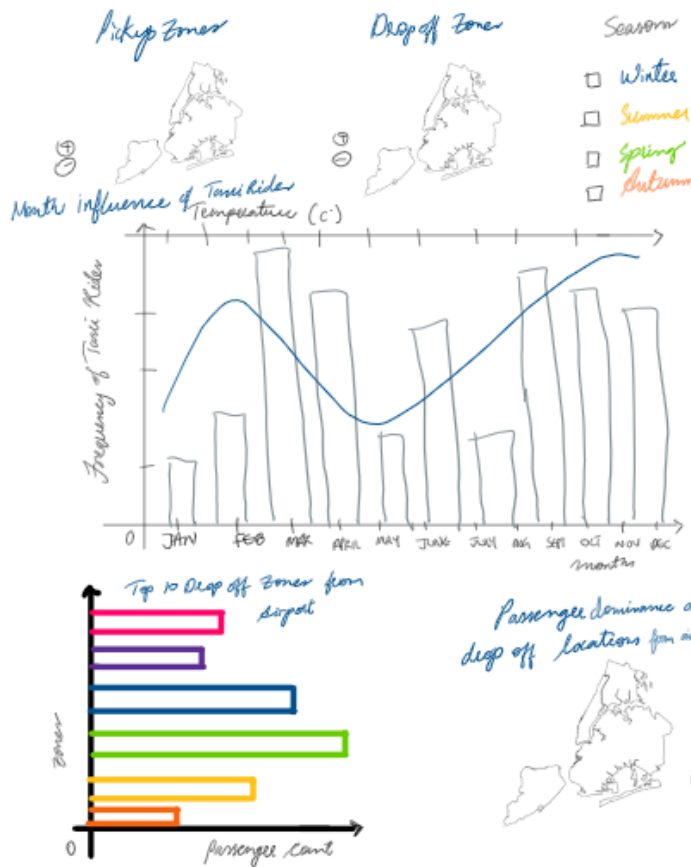 Pickup Zones
Drop off Zones
Seasons
Winter
Summer
Spring
Autumn
+
-
+
-
Month influence of Taxi Rider
Temperature (c)
Frequency of Taxi Rider
0 JAN FEB MAR APRIL MAY JUNE JULY AUG SEPT OCT NOV DEC
months
Top 10 Drop off Zones from
Airport
Zones
0
Passenger count
Passenger dominance
drop off locations from